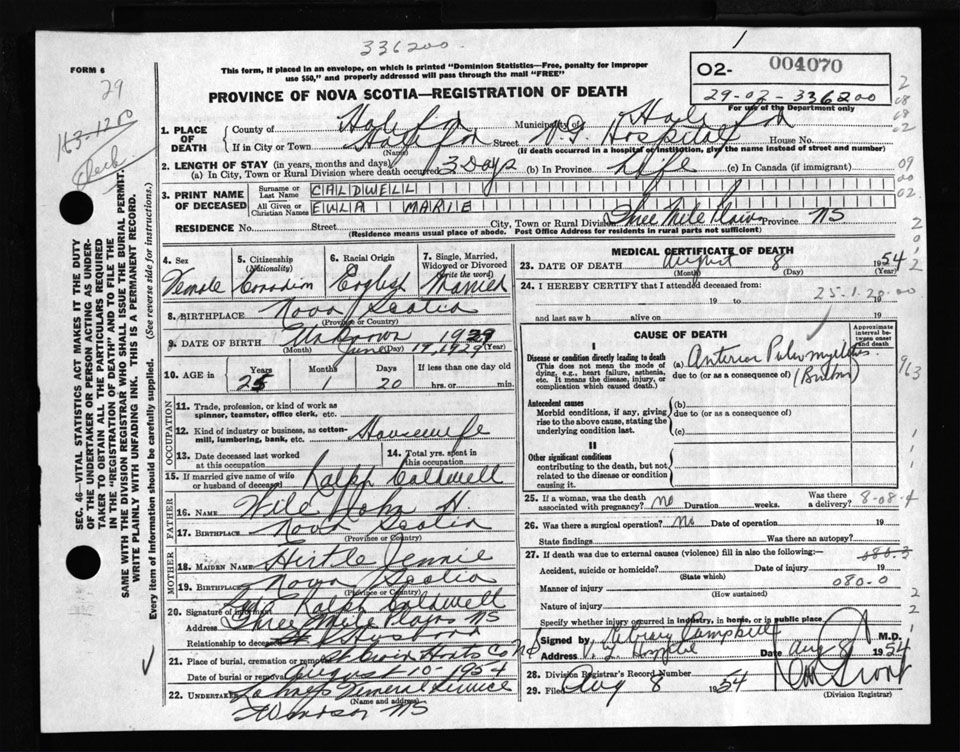 336200.
1
FORM 6
29
163-1200
Check
This form, if placed in an envelope, on which is printed "Dominion Statistics—Free, penalty for improper
use $50," and properly addressed will pass through the mail "FREE"
02- 004070
29-02-336200
For use of the Department only
PROVINCE OF NOVA SCOTIA—REGISTRATION OF DEATH
1. PLACE OF DEATH
County of Halifax Municipality of Halifax
If in City or Town Halifax Street V.G. Hospital House No.
(If death occurred in a hospital or institution, give the name instead of street and number)
2. LENGTH OF STAY (in years, months and days)
(a) In City, Town or Rural Division where death occurred 3 Days (b) In Province Life (c) In Canada (if immigrant)
3. PRINT NAME OF DECEASED
Surname or Last Name CALDWELL
All Given or Christian Names EWLA MARIE
RESIDENCE No. Street City, Town or Rural Division Three Mile Plains Province NS
(Residence means usual place of abode. Post Office Address for residents in rural parts not sufficient)
4. Sex Female
5. Citizenship (Nationality) Canadian
6. Racial Origin English
7. Single, Married, Widowed or Divorced (write the word) Married
8. BIRTHPLACE Nova Scotia
(Province or Country)
9. DATE OF BIRTH Unknown 1929
(Month) June (Day) 19, 1929 (Year)
10. AGE in Years 25 Months 1 Days 20 If less than one day old hrs. or min.
OCCUPATION
11. Trade, profession, or kind of work as
spinner, teamster, office clerk, etc.
12. Kind of industry or business, as cotton-
mill, lumbering, bank, etc. Housewife
13. Date deceased last worked
at this occupation
14. Total yrs. spent in
this occupation
15. If married give name of wife
or husband of deceased Ralph Caldwell
FATHER
16. NAME Wile John H.
17. BIRTHPLACE Nova Scotia
(Province or Country)
MOTHER
18. MAIDEN NAME Hirtle Jennie
19. BIRTHPLACE Nova Scotia
(Province or Country)
20. Signature of informant Ralph Caldwell
Address Three Mile Plains NS
Relationship to deceased Husband
21. Place of burial, cremation or removal St Croix Hants Co NS
Date of burial or removal August 10 - 1954
22. UNDERTAKER Funeral Service
(Name and address)
Windsor NS
MEDICAL CERTIFICATE OF DEATH
23. DATE OF DEATH August 8 1954
(Month) (Day) (Year)
24. I HEREBY CERTIFY that I attended deceased from
19 to 19
25-1-20-00
and last saw h alive on 19
CAUSE OF DEATH
Approximate interval between onset and death
I
Disease or condition directly leading to death
(This does not mean the mode of
dying, e.g., heart failure, asthenia,
etc. It means the disease, injury, or
complication which caused death.)
(a) Anterior Poliomyelitis
due to (or as a consequence of) (Bulbar)
Antecedent causes
Morbid conditions, if any, giving
rise to the above cause, stating the
underlying condition last.
(b)
due to (or as a consequence of)
(c)
II
Other significant conditions
contributing to the death, but not
related to the disease or condition
causing it.
25. If a woman, was the death
associated with pregnancy? No Duration weeks. Was there a delivery? 8-08-4
26. Was there a surgical operation? No Date of operation 19
State findings Was there an autopsy?
27. If death was due to external causes (violence) fill in also the following:—
Accident, suicide or homicide? Date of injury 19
(State which)
080.3
Manner of injury 080-0
(How sustained)
Nature of injury
Specify whether injury occurred in industry, in home, or in public place
Signed by Campbell M.D.
Address V. G. Hospital Date Aug 8 1954
28. Division Registrar's Record Number
29. Filed Aug 8 1954
(Division Registrar)
SEC. 46—VITAL STATISTICS ACT MAKES IT THE DUTY
OF THE UNDERTAKER OR PERSON ACTING AS UNDER-
TAKER TO OBTAIN ALL THE PARTICULARS REQUIRED
IN THE "REGISTRATION OF DEATH" AND TO FILE THE
SAME WITH THE DIVISION REGISTRAR WHO SHALL ISSUE THE BURIAL PERMIT.
WRITE PLAINLY WITH UNFADING INK. THIS IS A PERMANENT RECORD.
Every item of information should be carefully supplied. (See reverse side for instructions.)